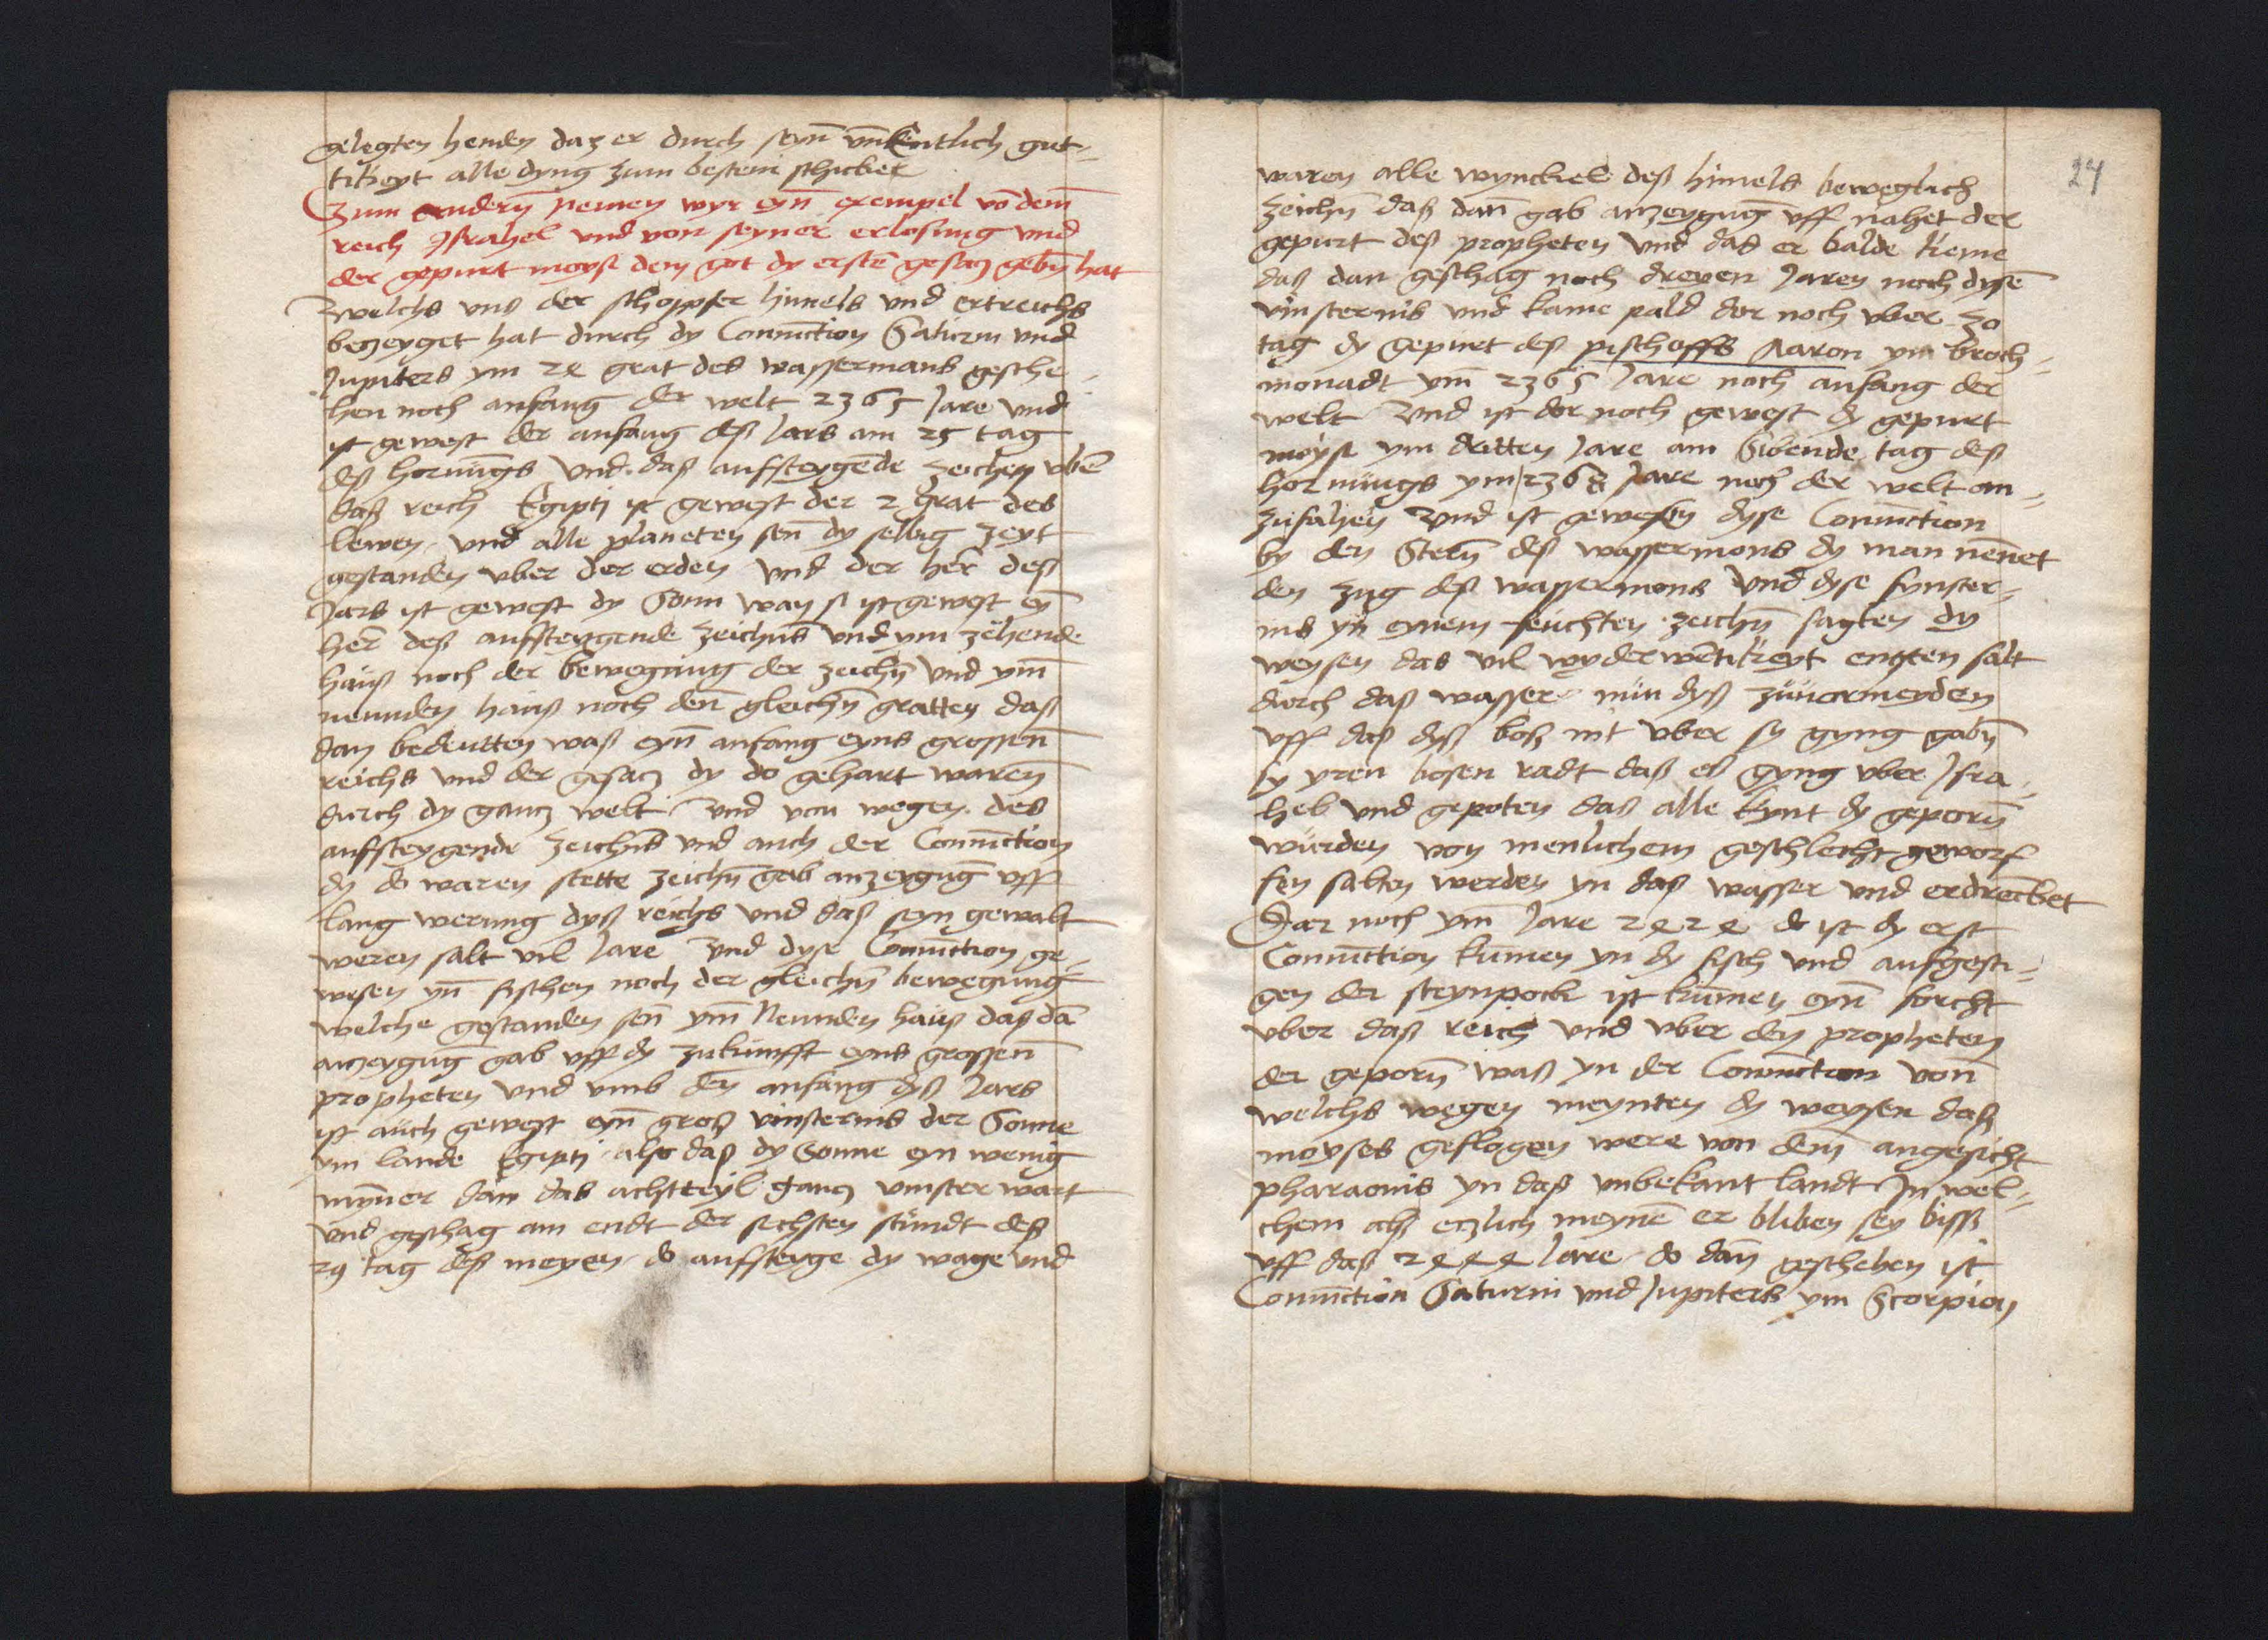 gelegten henden daz er durch seyn̄ vnentlich gut-
tikeyt alle dyng zum bestem schicket
Zum andern̄ nemen wyr eyn̄ exempel vō dem̄
reich Israhel vnd von seyner erlosung vnd
der gepurt moysi dem got dy erstē gesacz gebn̄ hat
Welchs vns der schopffer himels vnd ertreichs
beczeyget hat durch dy Coniūction Saturni vnd
Jupiters ym 24 grat des wassermans gesche-
hen noch anfang der welt 2365 Jare vnd
ist gewest der anfang deß Jars am 25 tag
deß hornūgs vnd daß aufsteygēde zeichen vbē
daß reich Egipti ist gewest der 2 grat des
lewen vnd alle planeten sen̄ dy selbig zeyt
gestanden vber der erden vnd der her deß
Jars ist gewest dy Sonn wan si ist gewest eȳ
her deß aufsteygende zeichns vnd ym zehende
hauß noch der bewegung der zeichn̄ vnd ym̄
neunden hauß noch den̄ gleichn̄ gratten daß
dan bedeutten waß eyn̄ anfang eyns grossen̄
reichs vnd der gesacz dy do gehart waren̄
durch dy gancz welt vnd von wegen des
aufsteygende zeichns vnd auch der Coniūction
dy do waren stette zeichn̄ gab anzeygūg vff
lang werung dyß reichs vnd daß seyn gewalt
weren salt vil Jare vnd dyse Coniūction ge-
wesen yn̄ fischen noch der gleichn̄ bewegung
welche gestanden sen̄ ym̄ Neunden hauß daß dā
anzeygūg gab vff dy zukunfft eyns grossen̄
propheten vnd vmb den anfang dyß Jars
ist auch gewest eyn̄ groß vinsternis der Sonne
ym lande Egipti also daß dy Sonne eyn wenig
mynner dan das achtteyl gancz vinster wart
vnd geschag am endt der sechsten stundt deß
29 tag deß meyen do aufsteyge dy wage vnd
24
waren alle wynckel deß himels beweglich
zeichn̄ daß dan̄ gab anzeygūg vff nahet der
gepurt deß propheten vnd das er balde keme
daß dan geschag noch dreyen Jaren noch dysē
vinsternis vnd kame pald dor noch vber 30
tag dy gepurt deß pischoffs Aaron ym broch-
monadt ym̄ 2365 Jare noch anfang der
welt Vnd ist dor noch gewest dy gepurt
moysi ym dritten Jare am Sibende tag deß
hornungs ym 2368 Jare noch der welt an-
zufahen Vnd ist gewesen dyse Coniūction
by den Stern̄ deß wassermons dy man nen̄et
den zug deß wassermons Vnd dyse fynster-
nis yn eynem feuchten zeichn̄ sagten dy
weysen das vil wyderwētikeyt ensten salt
durch daß wasser nun dyß zuuormeyden
vff daß dyß boß nit vber sy gyng gabn̄
sy yren bosen radt daß eß gyng vber Isra-
hel vnd gepoten daß alle kynt dy geporn̄
wurden von menlichem geschlecht geworf
fen salten werden yn daß wasser vnd erdrencket
Dar noch ym̄ Jare 2424 do ist dy erst
Coniūction kumen yn dy fisch vnd aufgesti-
gen der steynpock ist kumen eyn̄ forcht
vber daß reich vnd vber den propheten
der geporn̄ waß yn der Coniūction von̄
welchs wegen meynten dy weysen daß
moyses geflogen were von dem̄ angesicht
pharaonis yn daß vnbekant landt In wel-
chem alß eczlich meynē er bliben sey biß
vff daß 2444 Jare do dan̄ geschehen ist
Coniūction Saturni vnd Jupiters ym Scorpion